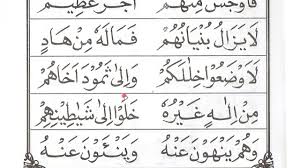 فَاَوْجَسَ مِنْهُمْ اَجْرٌ عَظِيْمٌ
لَا يَزَالُ بُنْيَانُهُمْ فَمَالَهٗ مِنْ هَادٍ
لَا وْضَعُوْا خِلٰلَكُمْ وَاِلٰى ثَمُوْدَ اَخَاهُمْ
مِنْ اِلٰهٍ غَيْرُهٗ خَلَوْا اِلٰى شَيٰطِيْنِهِمْ
وَهُمْ يَنْهَوْنَ عَنْهُ وَيَنْئَوْنَ عَنْهُ